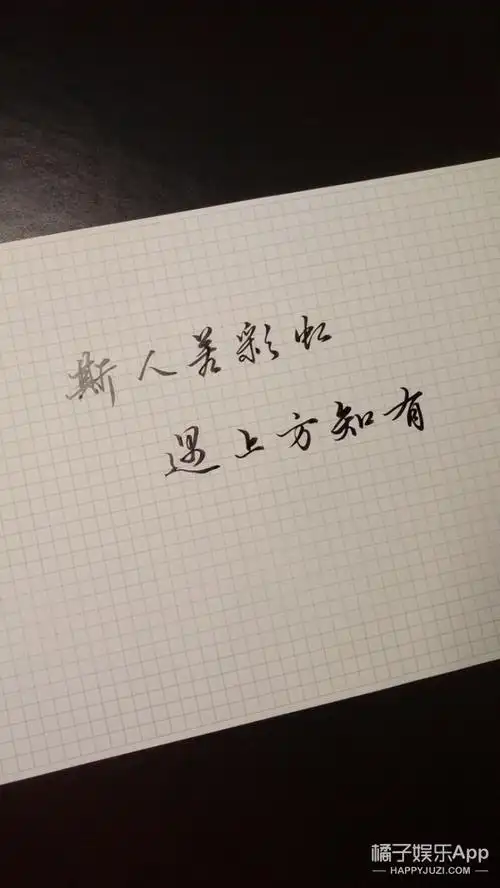 斯人若彩虹
遇上方知有
橘子娱乐App
HAPPYJUZI.COM